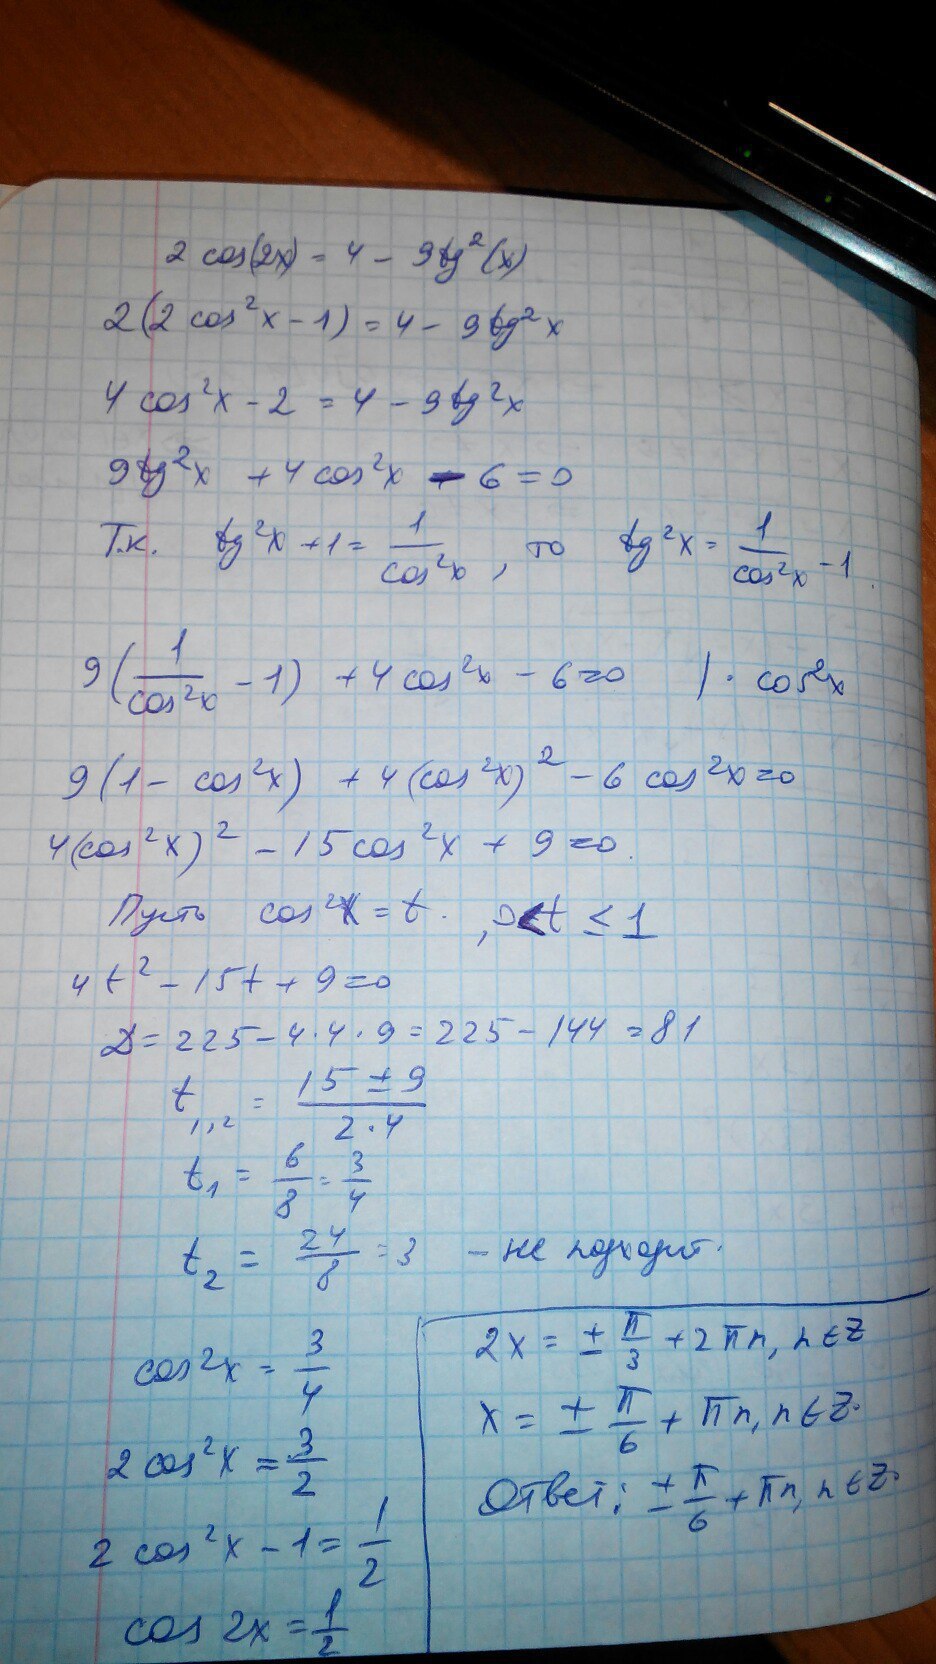 2 cos(2x) = 4 - 9tg²(x)
2(2 cos²x - 1) = 4 - 9tg²x
4 cos²x - 2 = 4 - 9tg²x
9tg²x + 4 cos²x - 6 = 0
Т.к. tg²x + 1 = 1/cos²x, то tg²x = 1/cos²x - 1
9(1/cos²x - 1) + 4 cos²x - 6 = 0 | · cos²x
9(1 - cos²x) + 4(cos²x)² - 6 cos²x = 0
4(cos²x)² - 15 cos²x + 9 = 0.
Пусть cos²x = t, 0 < t ≤ 1
4t² - 15t + 9 = 0
D = 225 - 4·4·9 = 225 - 144 = 81
t₁,₂ = (15 ± 9)/(2·4)
t₁ = 6/8 = 3/4
t₂ = 24/8 = 3 - не подходит.
cos²x = 3/4
2 cos²x = 3/2
2 cos²x - 1 = 1/2
cos 2x = 1/2
2x = ± π/3 + 2πn, n ∈ Z
x = ± π/6 + πn, n ∈ Z.
Ответ: ± π/6 + πn, n ∈ Z.